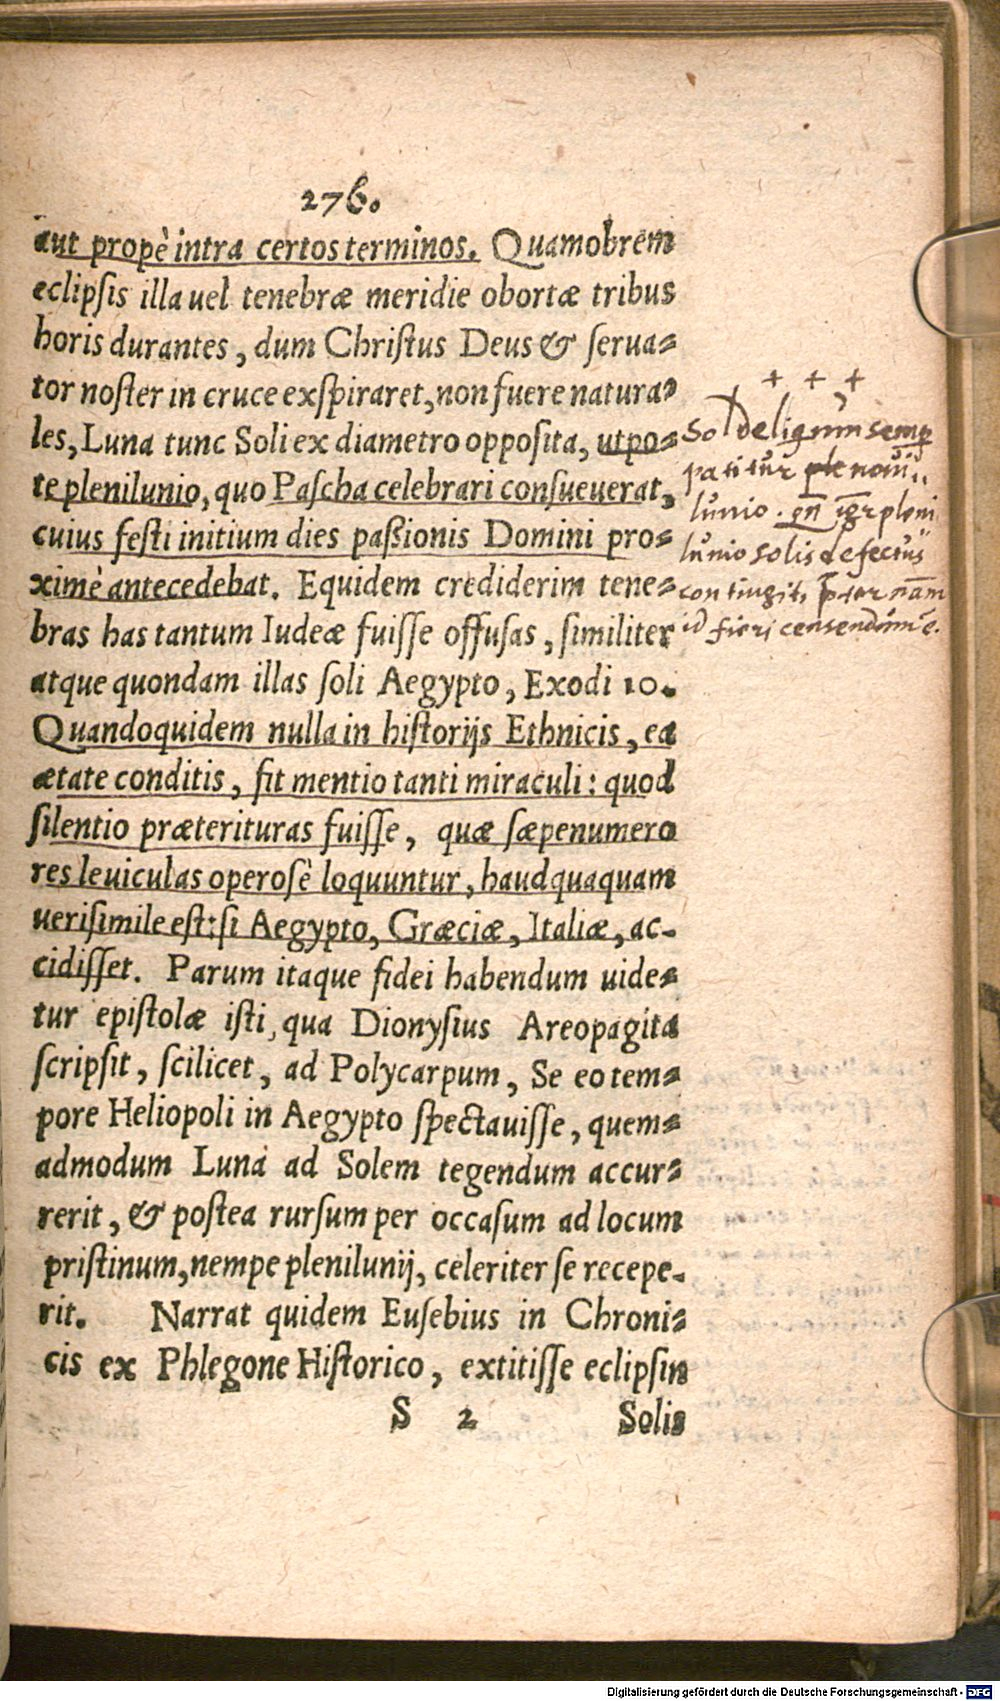 276.
aut propè intra certos terminos. Quamobrem
eclipsis illa uel tenebræ meridie obortæ tribus
horis durantes, dum Christus Deus & serua-
tor noster in cruce exspiraret, non fuere natura-
les, Luna tunc Soli ex diametro opposita, utpo-
te plenilunio, quo Pascha celebrari consueuerat,
cuius festi initium dies passionis Domini pro-
ximè antecedebat. Equidem crediderim tene-
bras has tantum Iudeæ fuisse offusas, similiter
atque quondam illas soli Aegypto, Exodi 10.
Quandoquidem nulla in historijs Ethnicis, ea
ætate conditis, fit mentio tanti miraculi: quod
silentio præterituras fuisse, quæ sæpenumero
res leuiculas operosè loquuntur, haudquaquam
uerisimile est: si Aegypto, Græciæ, Italiæ, ac-
cidisset. Parum itaque fidei habendum uide-
tur epistolæ isti, qua Dionysius Areopagita
scripsit, scilicet, ad Polycarpum, Se eo tem-
pore Heliopoli in Aegypto spectauisse, quem-
admodum Luna ad Solem tegendum accur-
rerit, & postea rursum per occasum ad locum
pristinum, nempe plenilunij, celeriter se recepe-
rit. Narrat quidem Eusebius in Chroni-
cis ex Phlegone Historico, extitisse eclipsin
S 2 Solis
+ + +
Sol semp
patitur noui
lunio. pleni
lunio solis defectus
contingit,
id fieri
Digitalisierung gefördert durch die Deutsche Forschungsgemeinschaft - DFG